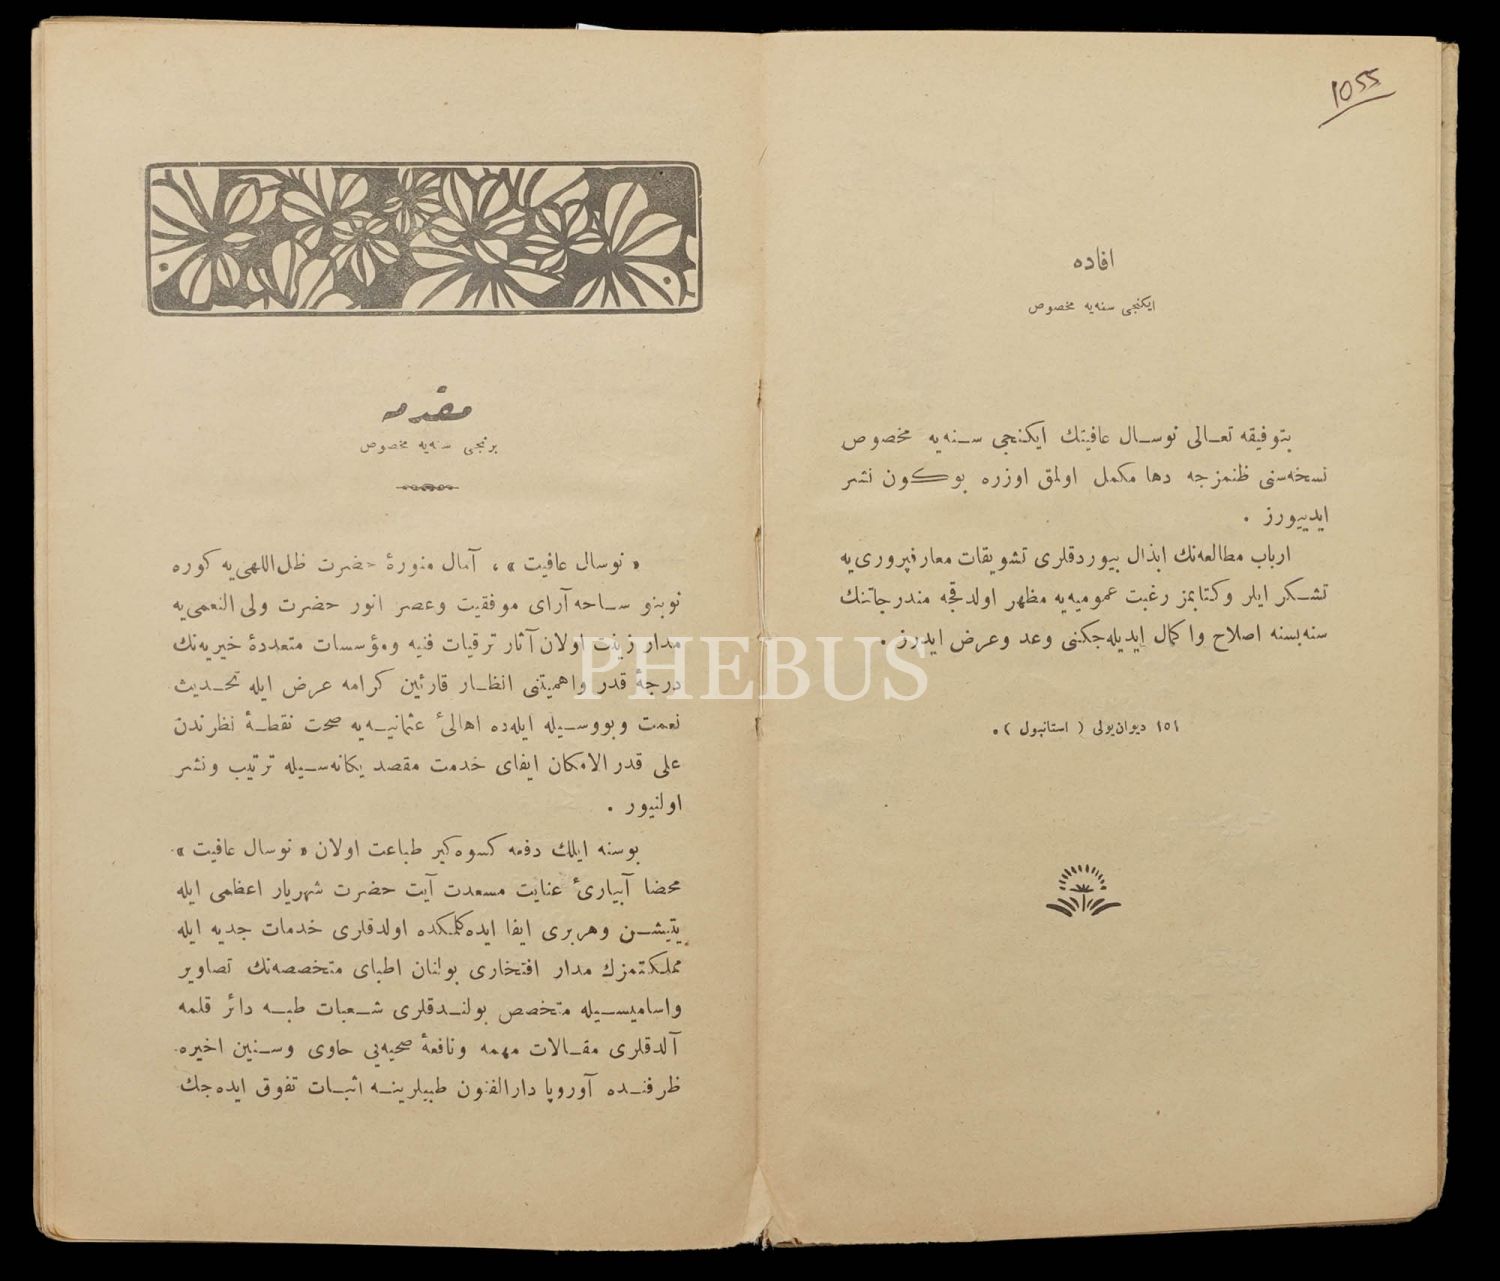 1055
افاده
ایکنجی سنه‌یه مخصوص
بتوفیقه تعالی نوسال عافیتك ایکنجی سنه‌یه مخصوص
نسخه‌سنی ظنمزجه دها مکمل اولمق اوزره بوکون نشر
ایدییورز .
ارباب مطالعه‌نك ابذال بیوردقلری تشویقات معارفپروری‌یه
تشکر ایلر وکتابمز رغبت عمومیه‌یه مظهر اولدقجه مندرجاتنك
سنه‌بسنه اصلاح واکمال ایدیله‌جکنی وعد وعرض ایدرز .
١٥١ دیوان‌یولی ( استانبول ) .
مقدمه
برنجی سنه‌یه مخصوص
« نوسال عافیت » ، آمال منورهٔ حضرت ظل‌اللهی‌یه کوره
نوبنو ساحه‌آرای موفقیت وعصر انور حضرت ولی‌النعمی‌یه
مدار زینت اولان آثار ترقیات فنیه ومؤسسات متعددهٔ خیریه‌نك
درجهٔ قدر واهمیتنی انظار قارئین کرامه عرض ایله تحدیث
نعمت وبووسیله ایله‌ده اهالیٔ عثمانیه‌یه صحت نقطهٔ نظرندن
علی قدرالامکان ایفای خدمت مقصد یکانه‌سیله ترتیب ونشر
اولنیور .
بوسنه ایلك دفعه کسوه‌کیر طباعت اولان « نوسال عافیت »
محضا آبیاریٔ عنایت مسعدت آیت حضرت شهریار اعظمی ایله
یتیشن وهربری ایفا ایده‌کلمکده اولدقلری خدمات جدیه ایله
مملکتمزك مدار افتخاری بولنان اطبای متخصصه‌نك تصاویر
واسامیسیله متخصص بولندقلری شعبات طبه دائر قلمه
آلدقلری مقالات مهمه ونافعهٔ صحیه‌یی حاوی وسنین اخیره
ظرفنده آوروپا دارالفنون طبیلرینه اثبات تفوق ایده‌جك
PHEBUS